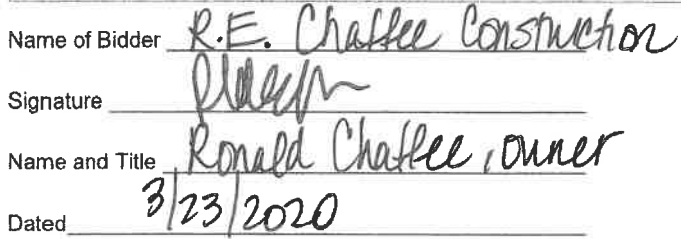 Name of Bidder R.E. Chaffee Construction
Signature
Name and Title Ronald Chaffee, owner
Dated 3/23/2020